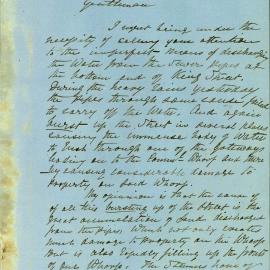 Gentlemen
I regret being under the
necessity of calling your attention
to the imperfect means of discharging
the Water from the Sewer Pipes at
the bottom end of King Street.
During the heavy rains yesterday
the Pipes through some cause failed
to carry off the Water, and again
burst up the Street in several places
causing the immense body of Water
to rush through one of the Gateways
leading on to the Wharf and there
by causing considerable damage to
Property on said Wharf.
My opinion is that the cause of
all this bursting up of the Street is the
great accumulation of Sand discharged
from the Pipes, which not only creates
much damage to property on the Wharfs
but is also rapidly filling up the fronts
of our Wharfs. The Steamer